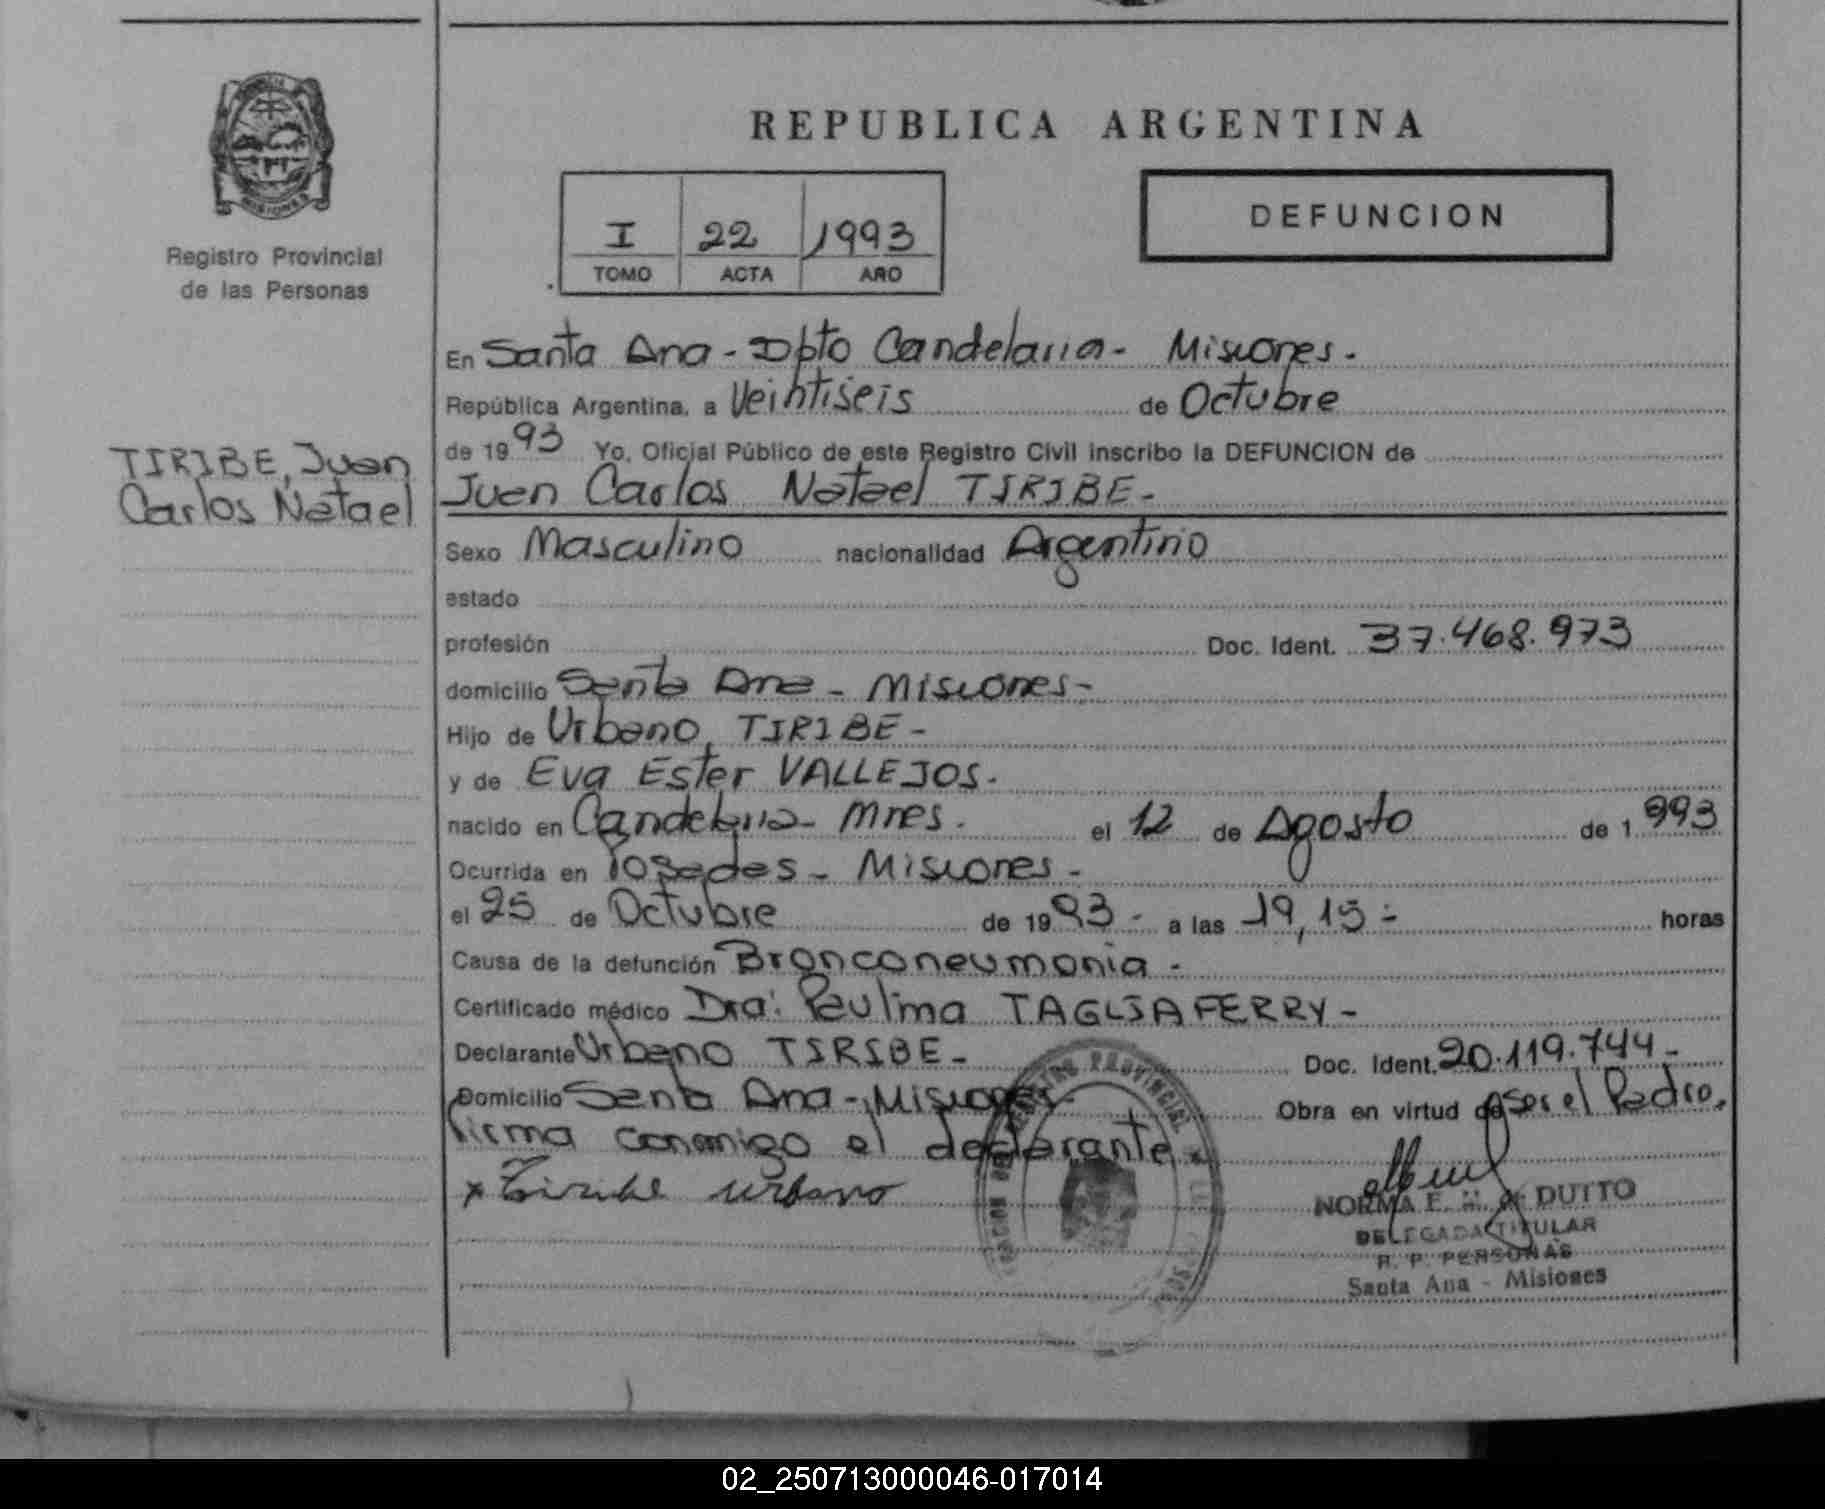 REPUBLICA ARGENTINA
Registro Provincial
de las Personas
I 22 1993
TOMO ACTA AÑO
DEFUNCION
En Santa Ana - Dpto Candelaria - Misiones.
República Argentina, a Veintiseis de Octubre
de 1993 Yo, Oficial Público de este Registro Civil inscribo la DEFUNCION de
Juan Carlos Natael TIRIBE -
TIRIBE, Juan
Carlos Natael
Sexo Masculino nacionalidad Argentino
estado
profesión Doc. Ident. 37.468.973
domicilio Santa Ana - Misiones -
Hijo de Urbano TIRIBE -
y de Eva Ester VALLEJOS.
nacido en Candelaria - Mnes. el 12 de Agosto de 1993
Ocurrida en Posadas - Misiones -
el 25 de Octubre de 1993 - a las 19,15 - horas
Causa de la defunción Bronconeumonia -
Certificado médico Dra: Paulina TAGLIAFERRY -
Declarante Urbano TIRIBE - Doc. Ident. 20.119.744 -
Domicilio Santa Ana - Misiones - Obra en virtud de ser el Padre,
firma conmigo el declarante
x Tiribe urbano
NORMA E. H. de DUTTO
DELEGADA TITULAR
R. P. PERSONAS
Santa Ana - Misiones
02_250713000046-017014